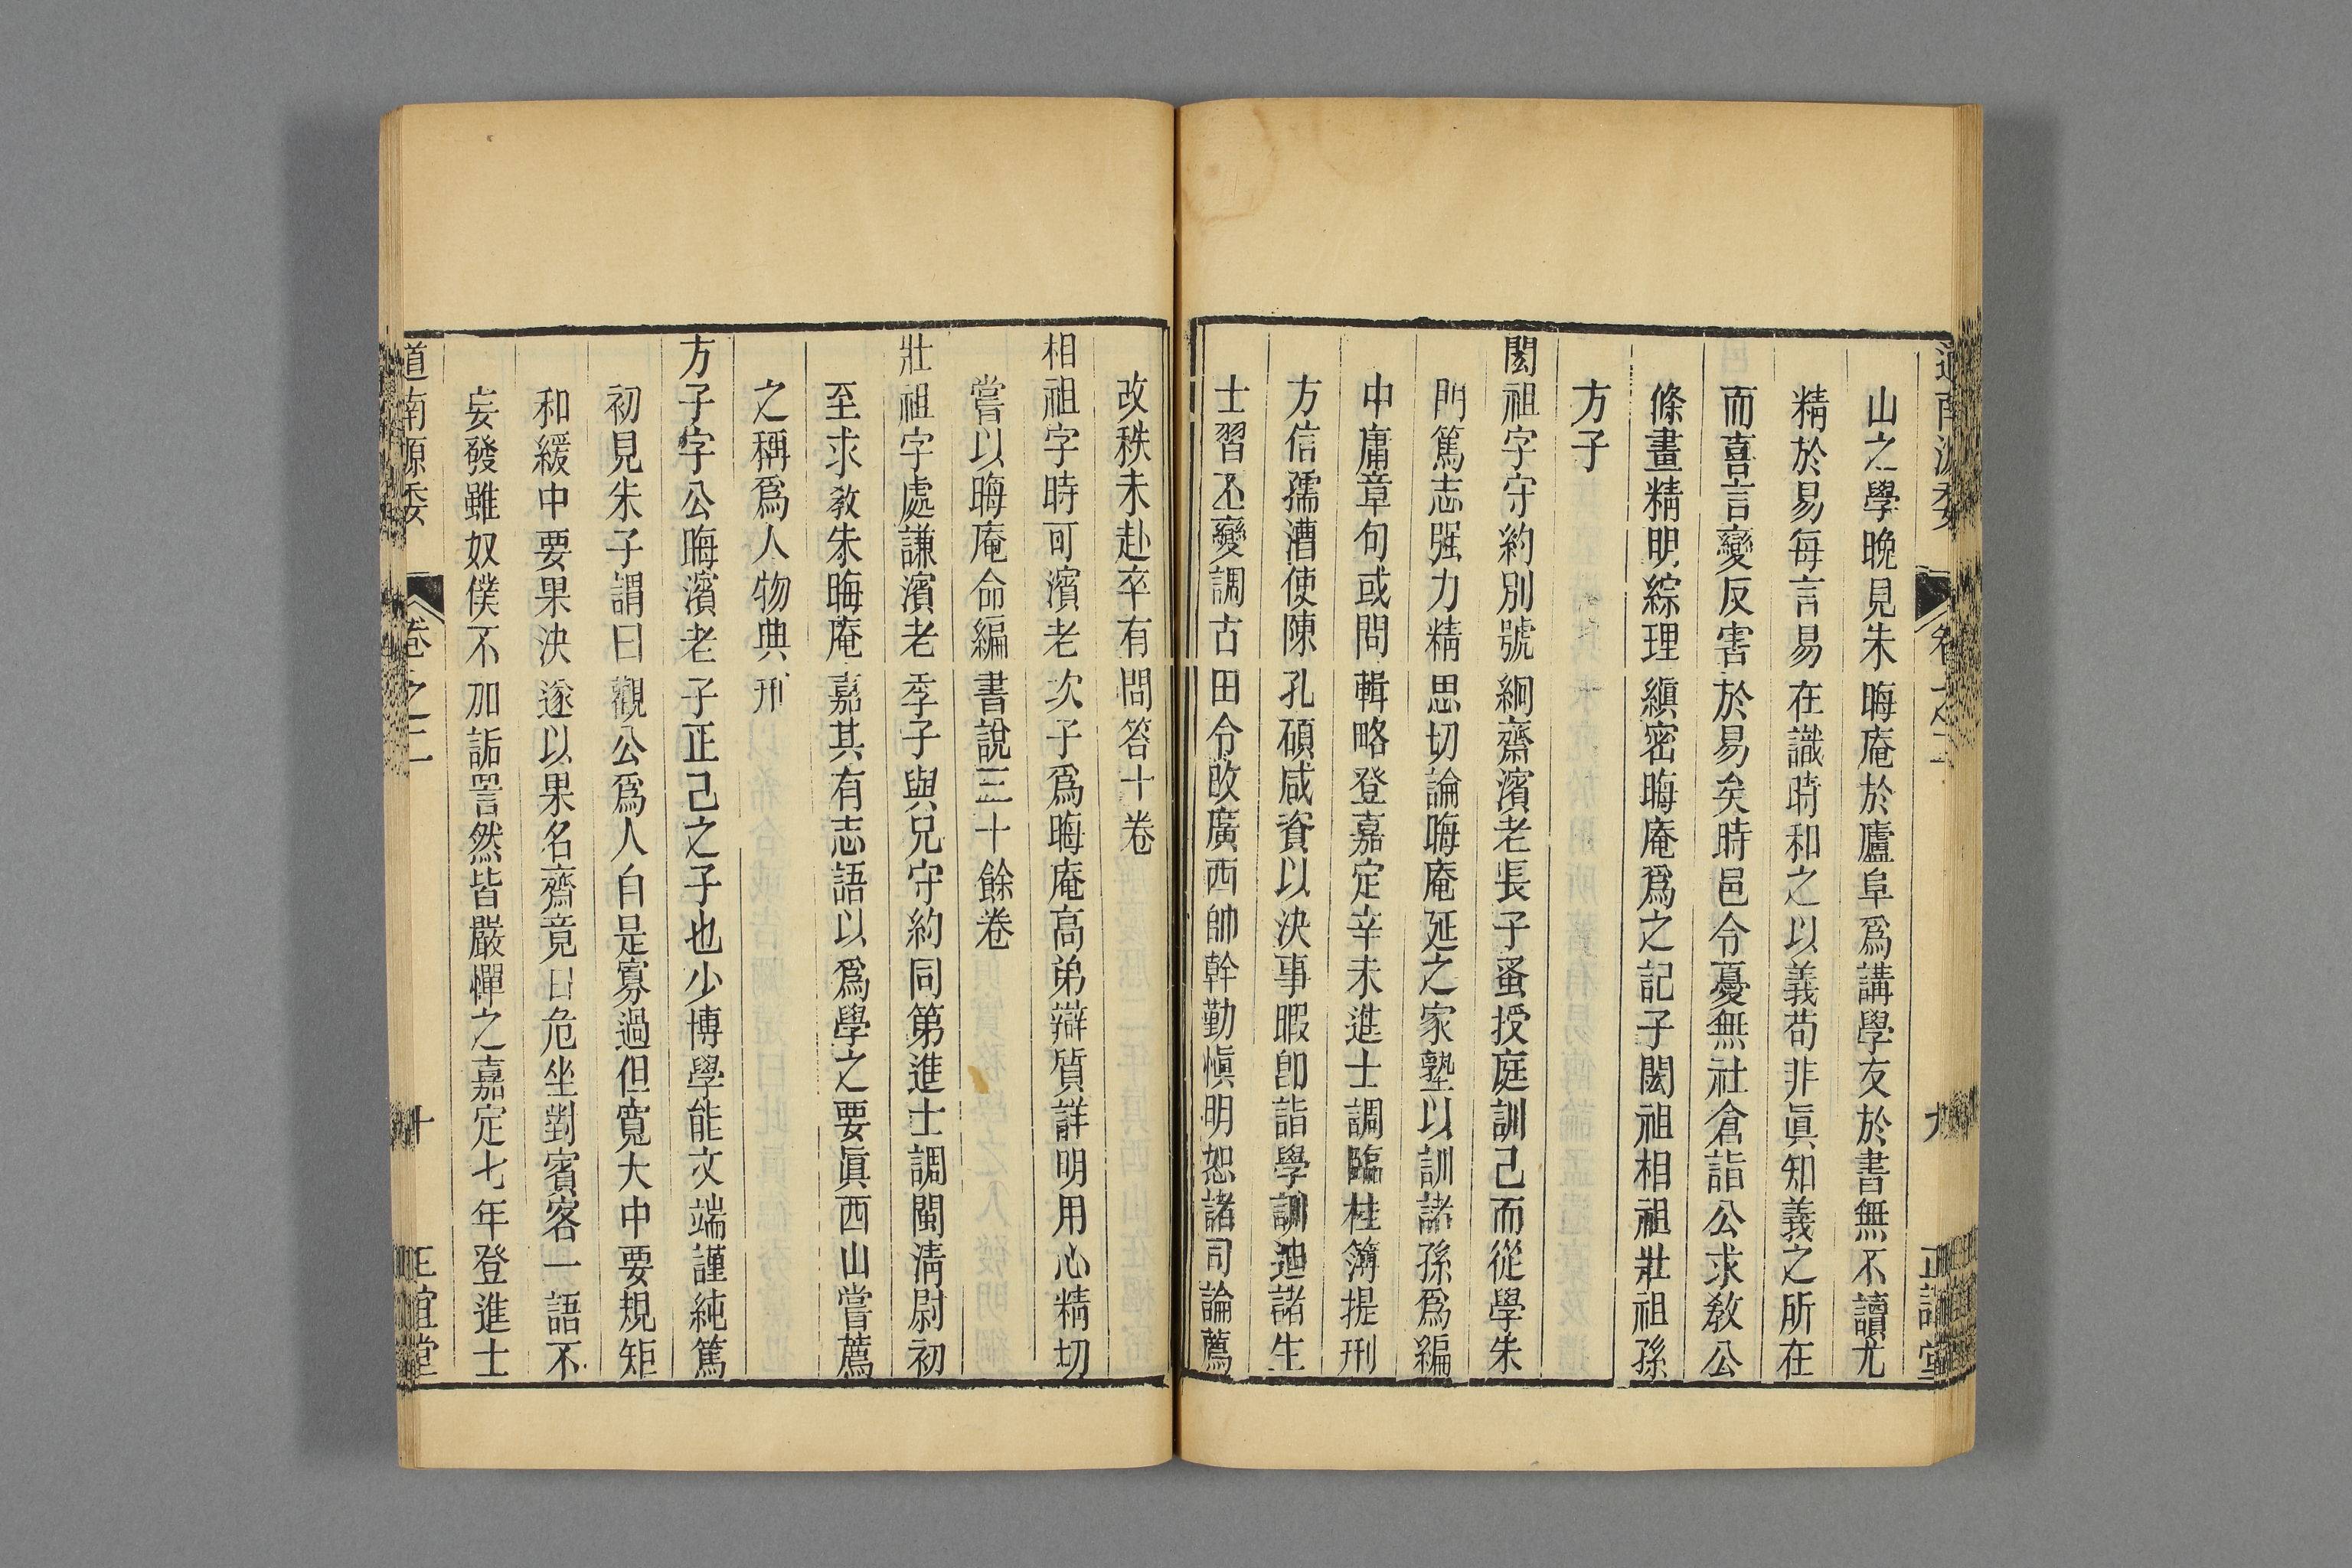 山之學晚見朱晦庵於廬阜爲講學友於書無不讀尤
精於易每言易在識時和之以義苟非眞知義之所在
而喜言變反害於易矣時邑令憂無社倉詣公求敎公
條畫精明綜理縝密晦庵爲之記子閎祖相祖壯祖孫
方子
閎祖字守約別號綱齋濱老長子蚤授庭訓己而從學朱
門篤志强力精思切論晦庵延之家塾以訓諸孫爲編
中庸章句或問輯略登嘉定辛未進士調臨桂簿提刑
方信孺漕使陳孔碩咸資以決事暇卽詣學訓迪諸生
士習丕變調古田令改廣西帥幹勤愼明恕諸司論薦
改秩未赴卒有問答十卷
相祖字時可濱老次子爲晦庵高弟辯質詳明用心精切
嘗以晦庵命編書說三十餘卷
壯祖字處謙濱老季子與兄守約同第進士調閩淸尉初
至求敎朱晦庵嘉其有志語以爲學之要眞西山嘗薦
之稱爲人物典刑
方子字公晦濱老子正己之子也少博學能文端謹純篤
初見朱子謂曰觀公爲人自是寡過但寬大中要規矩
和緩中要果決遂以果名齋竟日危坐對賓客一語不
妄發雖奴僕不加詬詈然皆嚴憚之嘉定七年登進士
道南源委 卷之二 十 正誼堂